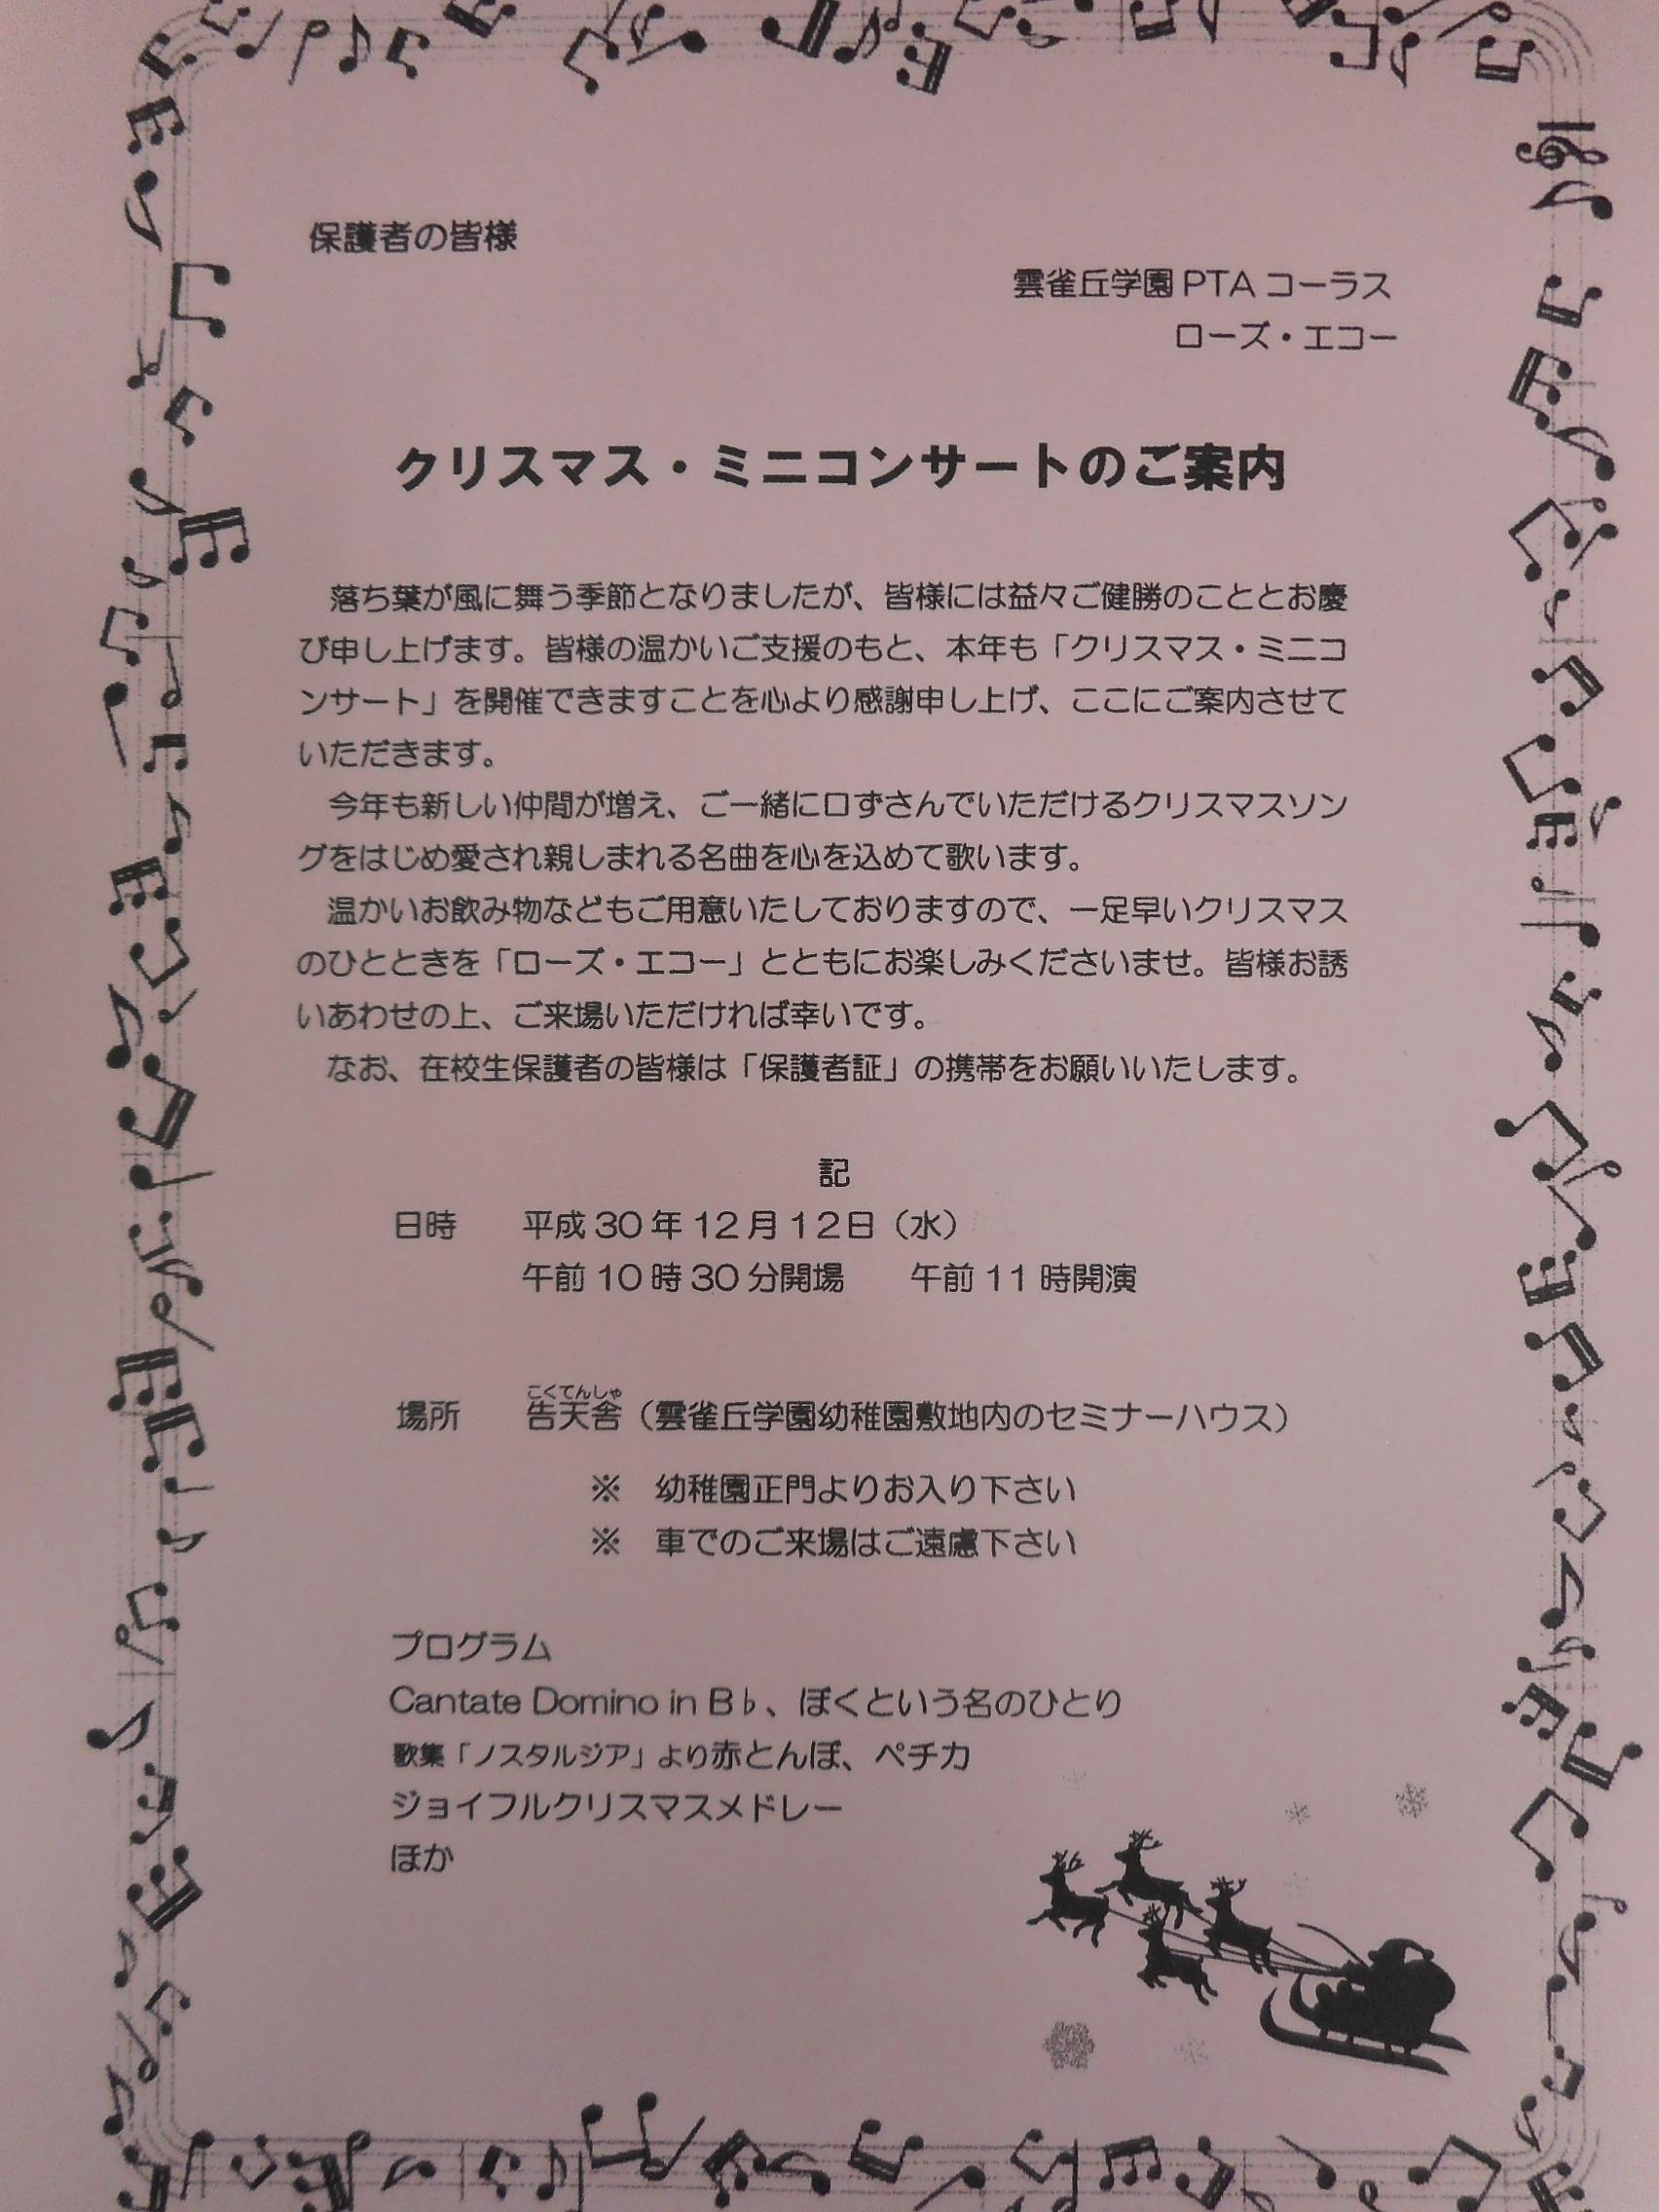 保護者の皆様
雲雀丘学園 PTA コーラス
ローズ・エコー
クリスマス・ミニコンサートのご案内
落ち葉が風に舞う季節となりましたが、皆様には益々ご健勝のこととお慶
び申し上げます。皆様の温かいご支援のもと、本年も「クリスマス・ミニコ
ンサート」を開催できますことを心より感謝申し上げ、ここにご案内させて
いただきます。
今年も新しい仲間が増え、ご一緒に口ずさんでいただけるクリスマスソン
グをはじめ愛され親しまれる名曲を心を込めて歌います。
温かいお飲み物などもご用意いたしておりますので、一足早いクリスマス
のひとときを「ローズ・エコー」とともにお楽しみくださいませ。皆様お誘
いあわせの上、ご来場いただければ幸いです。
なお、在校生保護者の皆様は「保護者証」の携帯をお願いいたします。
記
日時 平成 30 年 12 月 12日（水）
午前 10 時 30 分開場 午前 11 時開演
こくてんしゃ
場所 告天舎（雲雀丘学園幼稚園敷地内のセミナーハウス）
※ 幼稚園正門よりお入り下さい
※ 車でのご来場はご遠慮下さい
プログラム
Cantate Domino in B♭、ぼくという名のひとり
歌集「ノスタルジア」より赤とんぼ、ペチカ
ジョイフルクリスマスメドレー
ほか